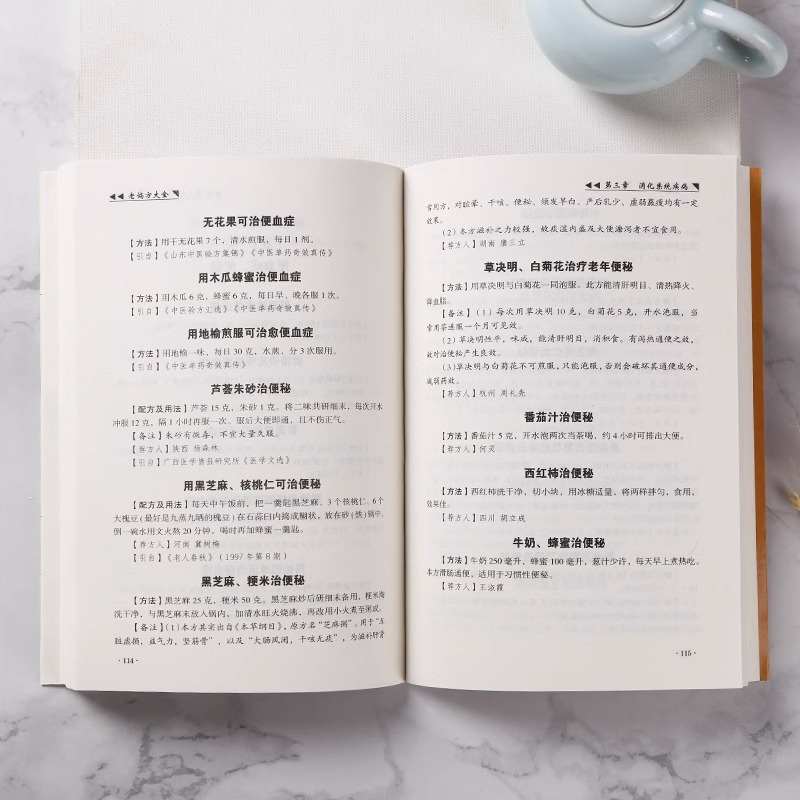 老偏方大全
无花果可治便血症
【方法】用干无花果 7 个，清水煎服，每日 1 剂。
【引自】《山东中医验方集锦》《中医单药奇效真传》
用木瓜蜂蜜治便血症
【方法】用木瓜 6 克，蜂蜜 6 克，每日早、晚各服 1 次。
【引自】《中医验方汇选》《中医单药奇效真传》
用地榆煎服可治愈便血症
【方法】用地榆一味，每日 30 克，水煎，分 3 次服用。
【引自】《中医单药奇效真传》
芦荟朱砂治便秘
【配方及用法】芦荟 15 克，朱砂 1 克。将二味共研细末，每次开水
冲服 12 克，隔 1 小时再服一次。服后大便即通，且不伤正气。
【备注】朱砂有微毒，不宜大量久服。
【荐方人】陕西 杨森林
【引自】广西医学情报研究所《医学文选》
用黑芝麻、核桃仁可治便秘
【配方及用法】每天中午饭前，把一羹匙黑芝麻、3 个核桃仁、6个
大槐豆（最好是九蒸九晒的槐豆）在石蒜臼内捣成糊状，放在砂（铁）锅中，
倒一碗水用文火熬 20 分钟，喝时再加蜂蜜一羹匙。
【荐方人】河南 冀树梅
【引自】《老人春秋》（1997 年第 8 期）
黑芝麻、粳米治便秘
【方法】黑芝麻 25 克，粳米 50 克。黑芝麻炒后研细末备用，粳米淘
洗干净，与黑芝麻末放入锅内，加清水旺火烧沸，再改用小火煮至粥成。
【备注】（1）本方其实出自《本草纲目》，原方名“芝麻粥”。用于“五
脏虚损，益气力，坚筋骨”，以及“大肠风闭，干咳无痰”，为滋补肝肾
·114·
第三章 消化系统疾病
常用方，对眩晕、干咳、便秘、须发早白、产后乳少、虚弱羸瘦均有一定
效果。
（2）本方滋补之力较强，故痰湿内盛及大便溏泻者不宜食用。
【荐方人】湖南 唐三立
草决明、白菊花治疗老年便秘
【方法】用草决明与白菊花一同泡服。此方能清肝明目、清热降火、
降血脂。
【备注】（1）每次用草决明 10 克，白菊花 5 克，开水泡服，当
常用茶连服一个月可见效。
（2）草决明性平，味咸，能清肝明目、消积食。有泻热通便之效，
故对治便秘产生良效。
（3）草决明与白菊花不可煎服，只能泡服，否则会破坏其通便成分，
减弱药效。
【荐方人】杭州 周礼先
番茄汁治便秘
【方法】番茄汁 5 克，开水泡两次当茶喝，约 4 小时可排出大便。
【荐方人】何灵
西红柿治便秘
【方法】西红柿洗干净，切小块，用冰糖适量，将两样拌匀，食用，
效果佳。
【荐方人】四川 胡立成
牛奶、蜂蜜治便秘
【方法】牛奶 250 毫升，蜂蜜 100 毫升，葱汁少许，每天早上煮热吃。
本方滑肠通便。适用于习惯性便秘。
【荐方人】王淑霞
·115·